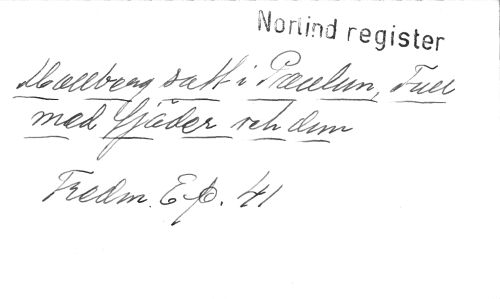 Norlind register
Mollberg satt i Paulun, Full
med fjäder och dun
Fredm. Ep. 41